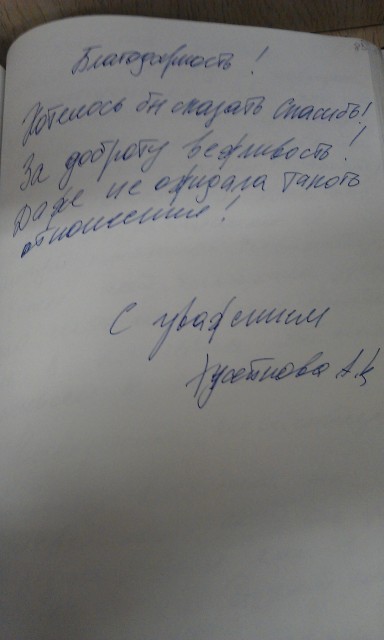 Благодарность!
Хотелось бы сказать Спасибо!
За доброту вежливость!
Даже не ожидала такого
отношения!
С уважением
А.